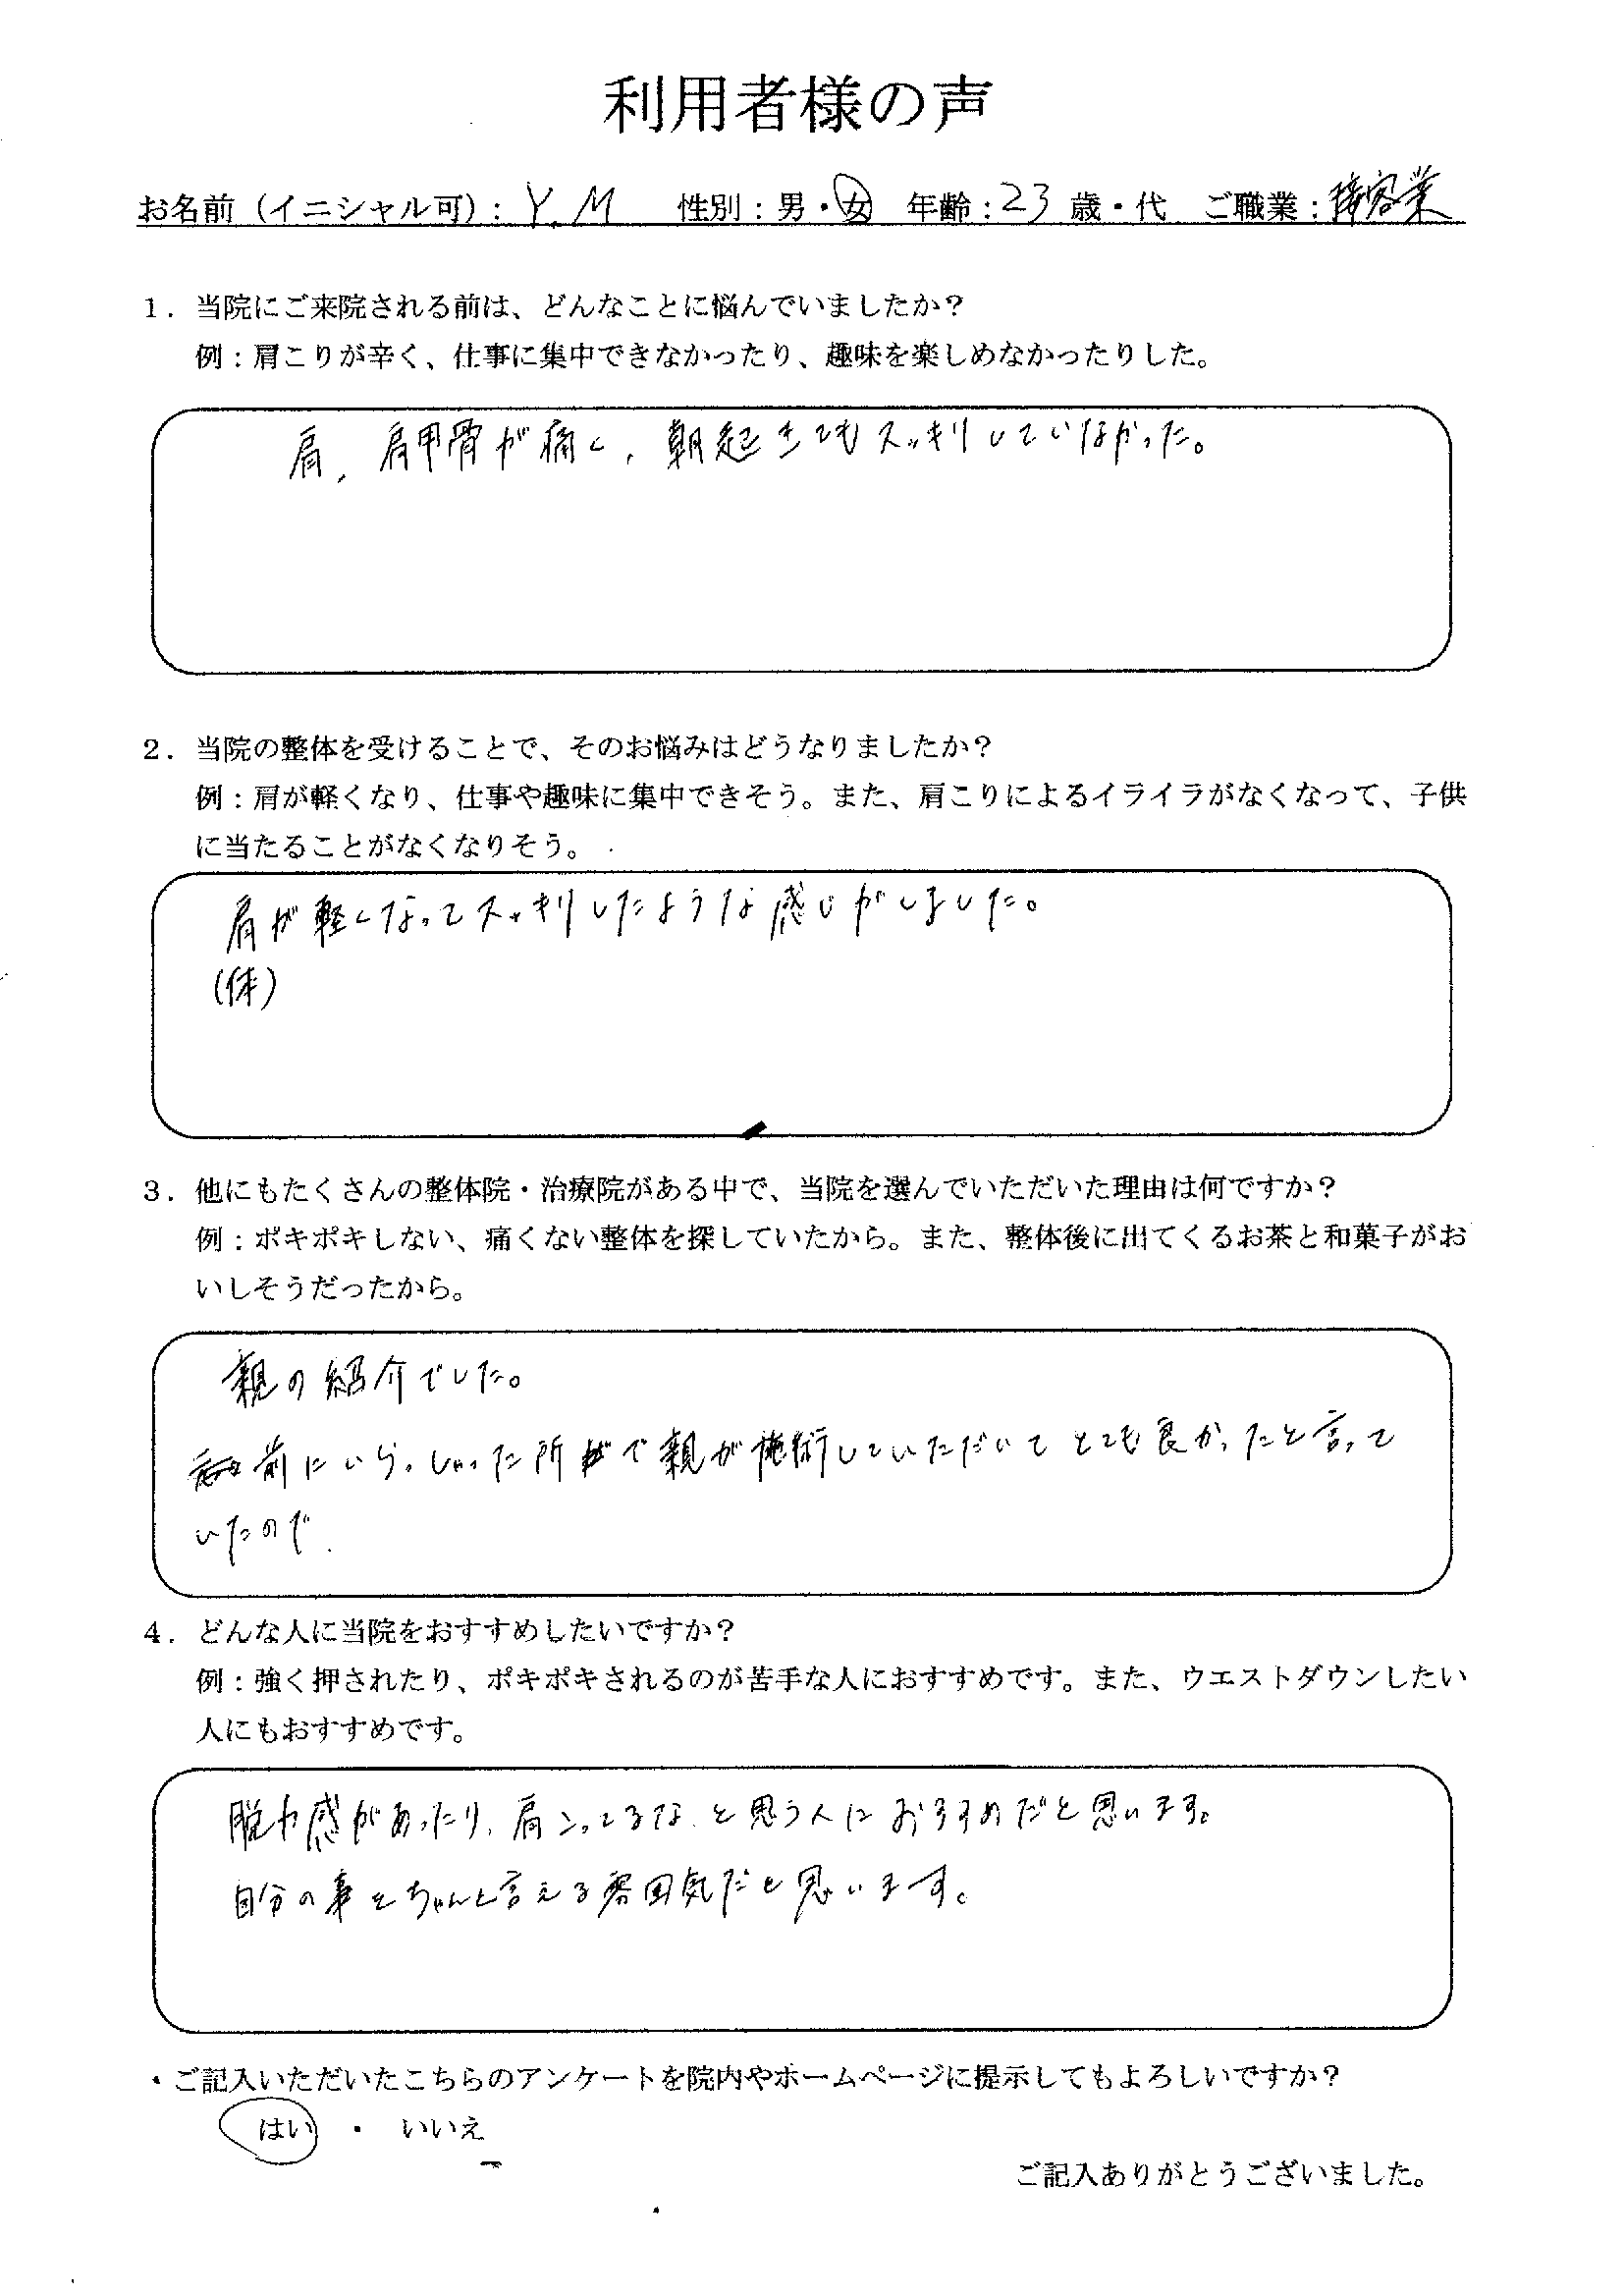 利用者様の声
お名前（イニシャル可）：Y.M　性別：男・女　年齢：23歳・代　ご職業：接客業
1．当院にご来院される前は、どんなことに悩んでいましたか？
例：肩こりが辛く、仕事に集中できなかったり、趣味を楽しめなかったりした。
肩、肩甲骨が痛く、朝起きてもスッキリしていなかった。
2．当院の整体を受けることで、そのお悩みはどうなりましたか？
例：肩が軽くなり、仕事や趣味に集中できそう。また、肩こりによるイライラがなくなって、子供
に当たることがなくなりそう。
肩が軽くなってスッキリしたような感じがしました。
(体)
3．他にもたくさんの整体院・治療院がある中で、当院を選んでいただいた理由は何ですか？
例：ポキポキしない、痛くない整体を探していたから。また、整体後に出てくるお茶と和菓子がお
いしそうだったから。
親の紹介でした。
前にいらっしゃった所で親が施術していただいてとても良かったと言って
いたので.
4．どんな人に当院をおすすめしたいですか？
例：強く押されたり、ポキポキされるのが苦手な人におすすめです。また、ウエストダウンしたい
人にもおすすめです。
脱力感があったり、肩こってるな、と思う人におすすめだと思います。
自分の事をちゃんと言える雰囲気だと思います。
・ご記入いただいたこちらのアンケートを院内やホームページに提示してもよろしいですか？
はい　・　いいえ
ご記入ありがとうございました。